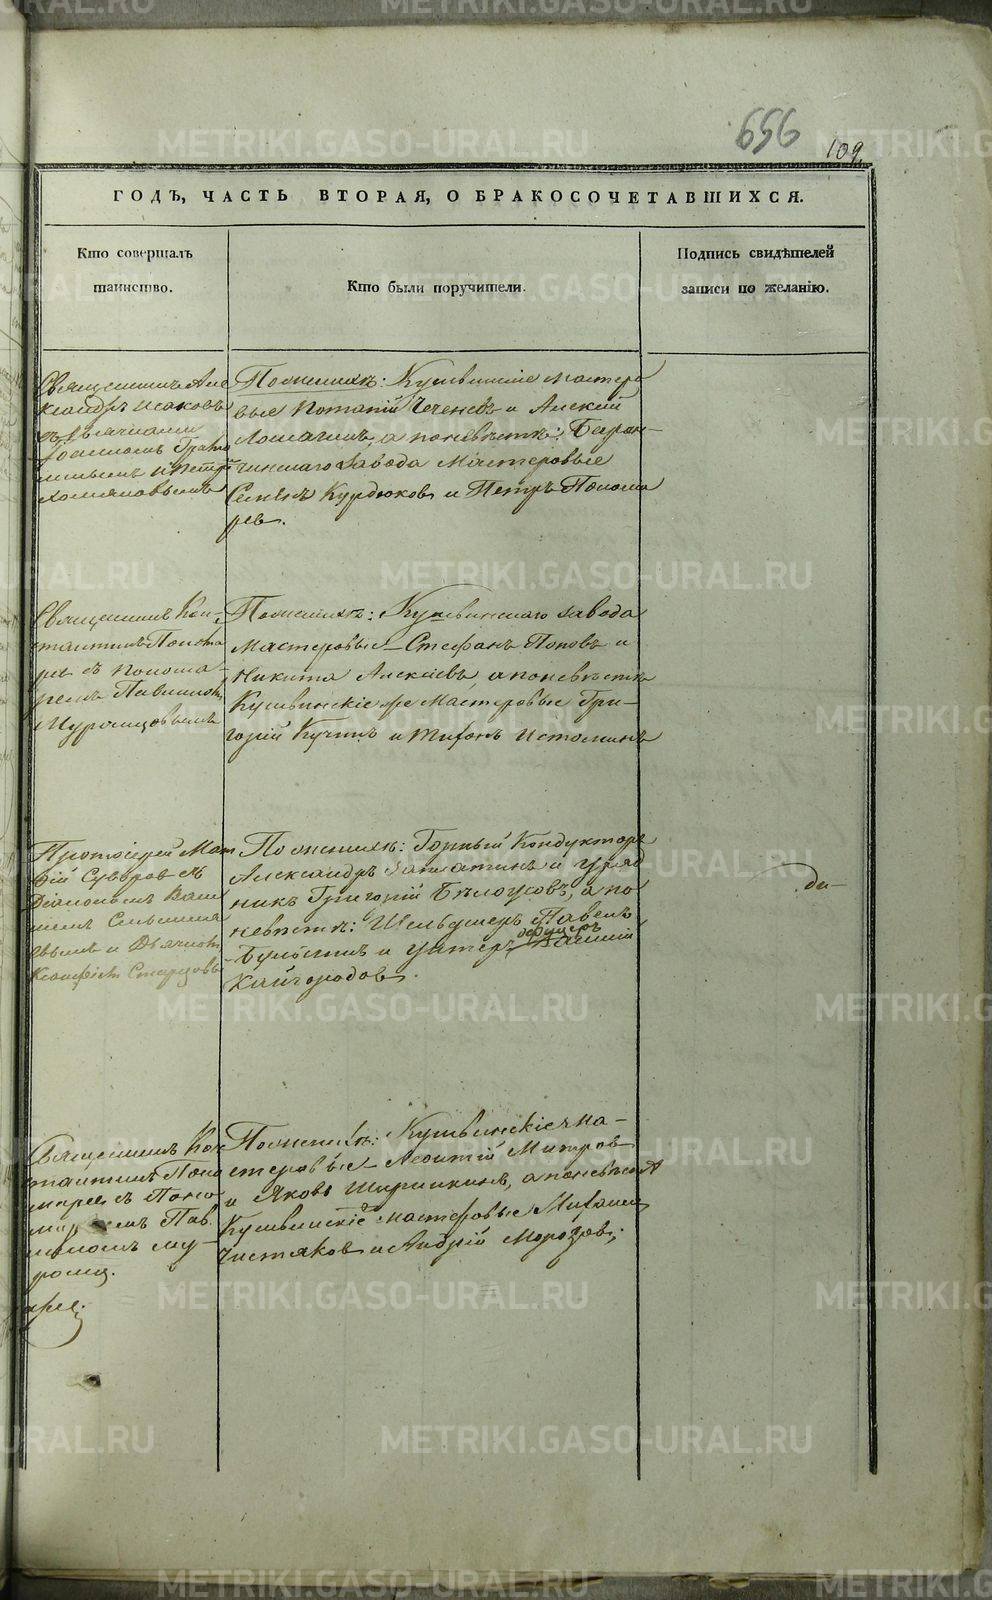 656
109.
ГОДЪ, ЧАСТЬ ВТОРАЯ, О БРАКОСОЧЕТАВШИХСЯ.
Кто совершалъ
таинство.
Кто были поручители.
Подпись свидѣтелей
записи по желанію.
Священникъ Але
ксандръ Исаковъ
съ дьячкомъ
Іоанномъ
и Петр
Хомяковымъ
По женихѣ: Кушвинскіе мастеро
вые Потапій Чеченевъ и Алексий
Ломагинъ, а по невѣстѣ: Баран-
чинскаго завода Мастеровые
Семенъ Курдюковъ и Петръ Понома
ревъ.
Священникъ Кон-
стантинъ Поно
съ понома
ремъ Павлиномъ
Муромцовымъ
По женихѣ: Кушвинскаго завода
мастеровые Стефанъ Поповъ и
Никита Алексѣевъ, а по невѣстѣ
Кушвинскіе же Мастеровые Гри-
горій Кучинъ и Тифонъ Истоминъ
Протоіерей Мат
ѳій Суворовъ съ
Діакономъ Васи
ліемъ
евымъ и Дьячком
Старцовы
По женихѣ: Горный Кондукторъ
Александръ Заплатинъ и Уряд
никъ Григорій Бѣлоусовъ, а по
невѣстѣ: Шельдшеръ Павелъ
и Унтеръ офицеръ
Кайгородовъ.
Священникъ Кон
стантинъ Поно
маревъ съ Поно
маремъ Пав
линомъ Му-
ромц.
По женихѣ: Кушвинскіе ма-
стеровые Леонтій Митров
и Яковъ Ширинкинъ, а по невѣстѣ
Кушвинскіе мастеровые Михаилъ
Чистяковъ и Андрій Морозовъ;
ди
METRIKI.GASO-URAL.RU